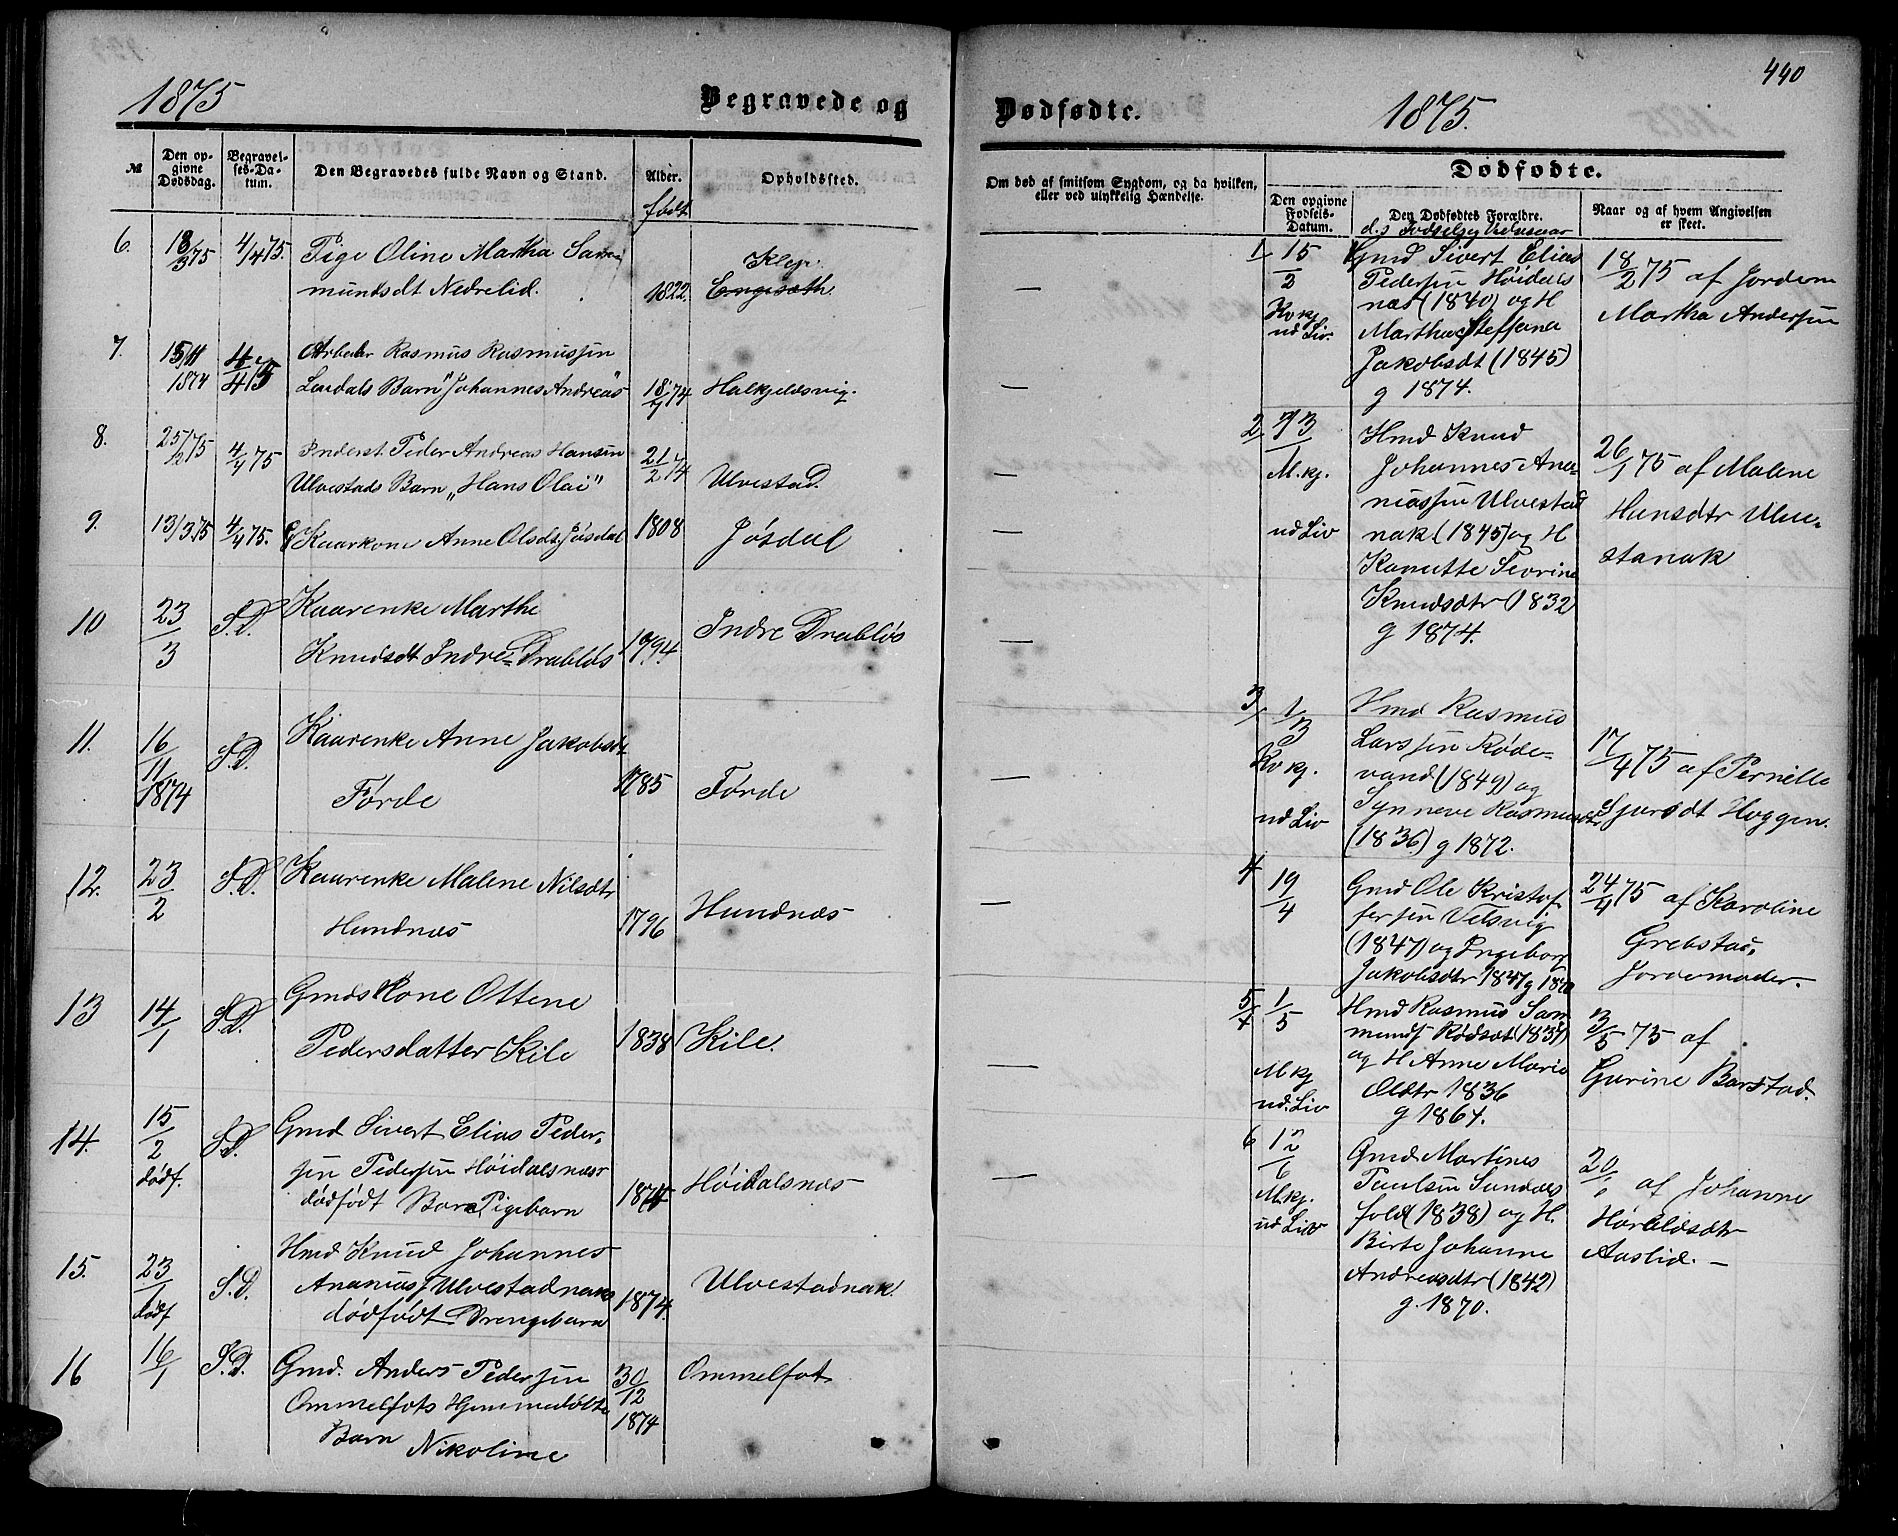 1875
Begravede og
№
Den opgivne Dødsdag.
Begravelses-Datum.
Den Begravedes fulde Navn og Stand.
Alder.
født
Opholdssted.
6.
18/3 75
4/4 75.
Pige Oline Martha Sam
mundsdt Nedrelid.
1822.
Klep.
Engesæth.
7.
15/11
1874
4/4 75
Arbeider Rasmus Rasmussen
Barn "Johannes Andreas"
18/7 74
Halkjelsvig.
8.
25/2 75
4/4 75
Inderst Peder Andreas Hansen
Ulvestads Barn „Hans Olai"
21/2 74
Ulvestad.
9.
13/3 75
4/4 75.
Kaarkone Anne Olsdt Jøsdal
1808
Jøsdal
10
23/3
S.D.
Kaarenke Marthe
Knudsdt Indre-Drabløs
1794.
Indre Drabløs
11.
16/11
1874
S.D.
Kaarenke Anne Jakobsdt
Førde
1785
Førde
12.
23/2
S.D.
Kaarenke Malene Nilsdtr
Hundnæs
1796
Hundnæs
13
14/1
S.D.
Gmds Kone Ottene
Pedersdatter Kile
1838
Kile.
14.
15/2
dødf.
S.D.
Gmd Sivert Elias Peder-
sen Pedersen Høidalsnæs
dødfødt Barn Pigebarn
1874
Høidalsnæs
15.
23/1
dødf
S.D.
Hmd Knud Johannes
Ananias Ulvestadnaks
dødfødt Drengebarn
1874.
Ulvestadnak.
16
16/1
S.D.
Gmd. Anders Pedersen
Ommelfots Hjemmedøbte
Barn Nikoline
30/12
1874
Ommelfot
440
Dødfødte.
1875.
Om død af smitsom Sygdom, og da hvilken,
eller ved ulykkelig Hændelse.
Dødfødte.
Den opgivne Fødsels-Datum.
Den Dødfødtes Forældre.
d.s Fødselsg
Naar og af hvem Angivelsen
er skeet.
1
15/2
Kv kj
ud Liv.
Gmd Sivert Elias
Pedersen Høidals
næs (1840) og H
Martha Steffena
Jakobsdt (1845)
g 1874.
18/2 75 af Jordem
Martha Andersen
2
23/1
M. kj.
ud Liv
Hmd Knud
Johannes Ana-
niassen Ulvestad
nak (1845) og H
Kanutte Sevrine
Knudsdtr (1832
g 1874.
26/1 75 af Malene
Hansdtr Ulve-
stanak
3
1/3
Kv kj.
ud Liv
Hmd Rasmus
Larssen Røde-
vand (1849) og
Synneve Rasmusdtr
(1836) g 1872.
17/4 75 af Pernille
Sjursdt Heggen.
4
19/4
Gmd Ole Kristof
fersen Velsvig
(1847) og Ingeborg
Jakobsdtr 1847 g
24/4 75 af Karoline
Grebstad,
Jordemoder.
5
1/5
M kj
ud. Liv
Hmd Rasmus Sam
munds Rødsæt (1837)
og H Anne Marie
Olsdtr 1836
g 1867.
3/5 75 af
Gurine Barstad.
6
12/6
M. kj.
ud Liv
Gmd Martines
Paulsen Sundals
fold (1838) og H.
Birte Johanne
Andreasdtr (1842)
g. 1870.
20/6 af Johanne
Haraldsdtr
Aaslid. –